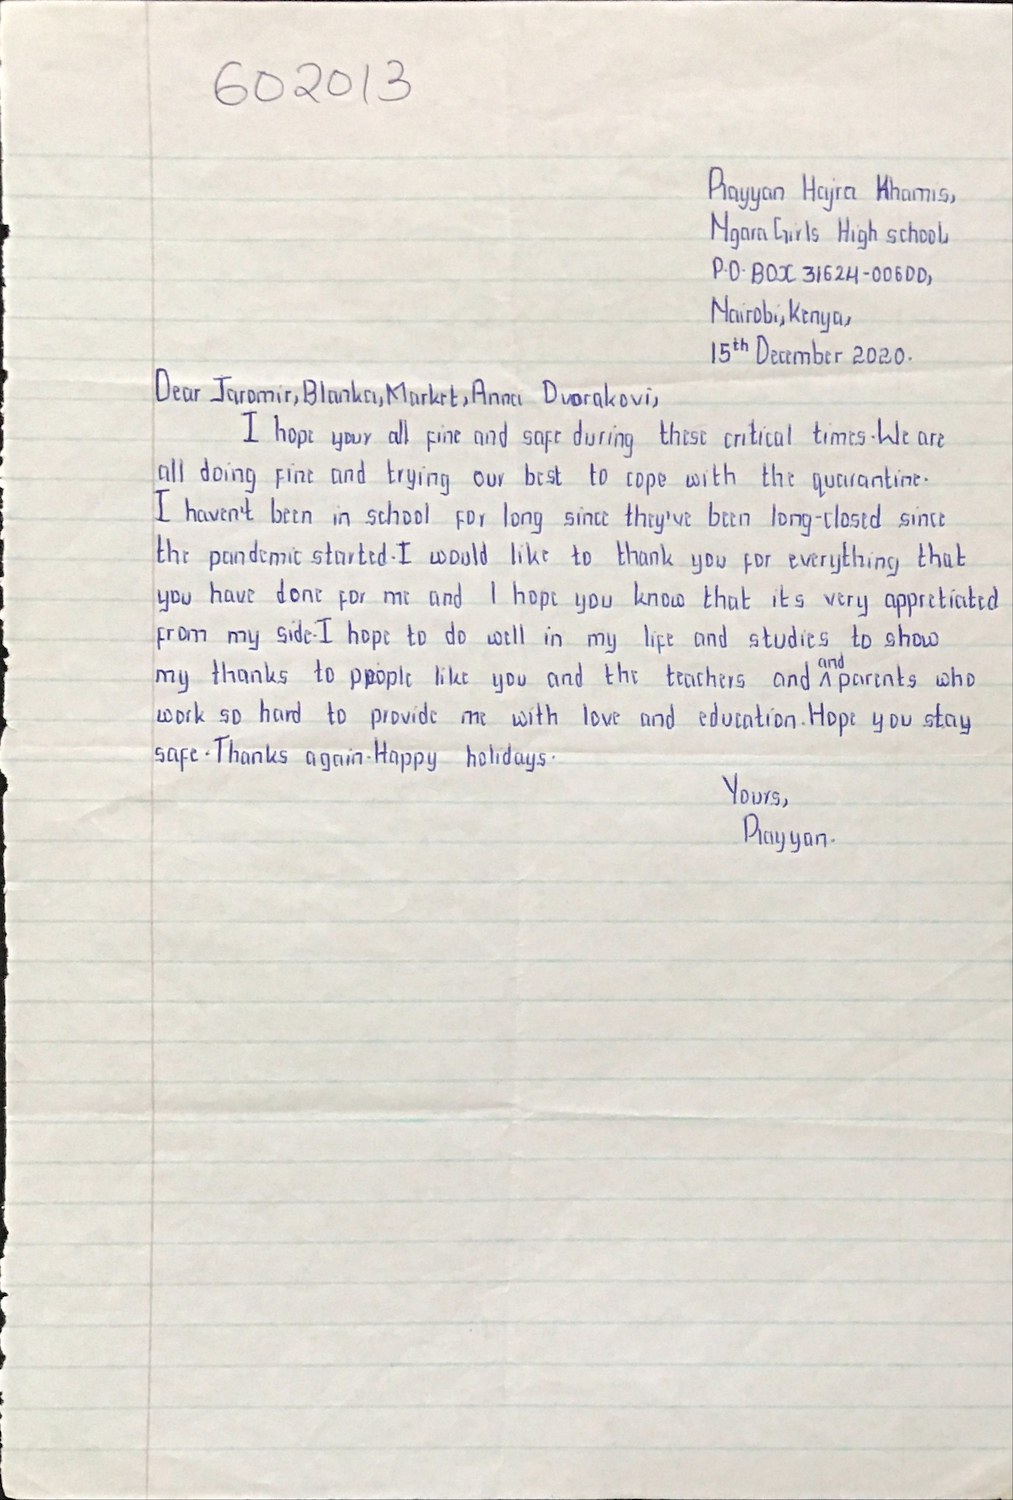 602013
Rayyan Hajra Khamis,
Ngara Girls High school
P.O. BOX 31624-00600,
Nairobi, Kenya,
15th December 2020.
Dear Jaromir, Blanka, Market, Anna Dvorakovi,
I hope your all fine and safe during these critical times. We are
all doing fine and trying our best to cope with the quarantine.
I haven't been in school for long since they've been long-closed since
the pandemic started. I would like to thank you for everything that
you have done for me and I hope you know that its very appretiated
from my side. I hope to do well in my life and studies to show
my thanks to people like you and the teachers and and parents who
work so hard to provide me with love and education. Hope you stay
safe. Thanks again. Happy holidays.
Yours,
Rayyan.